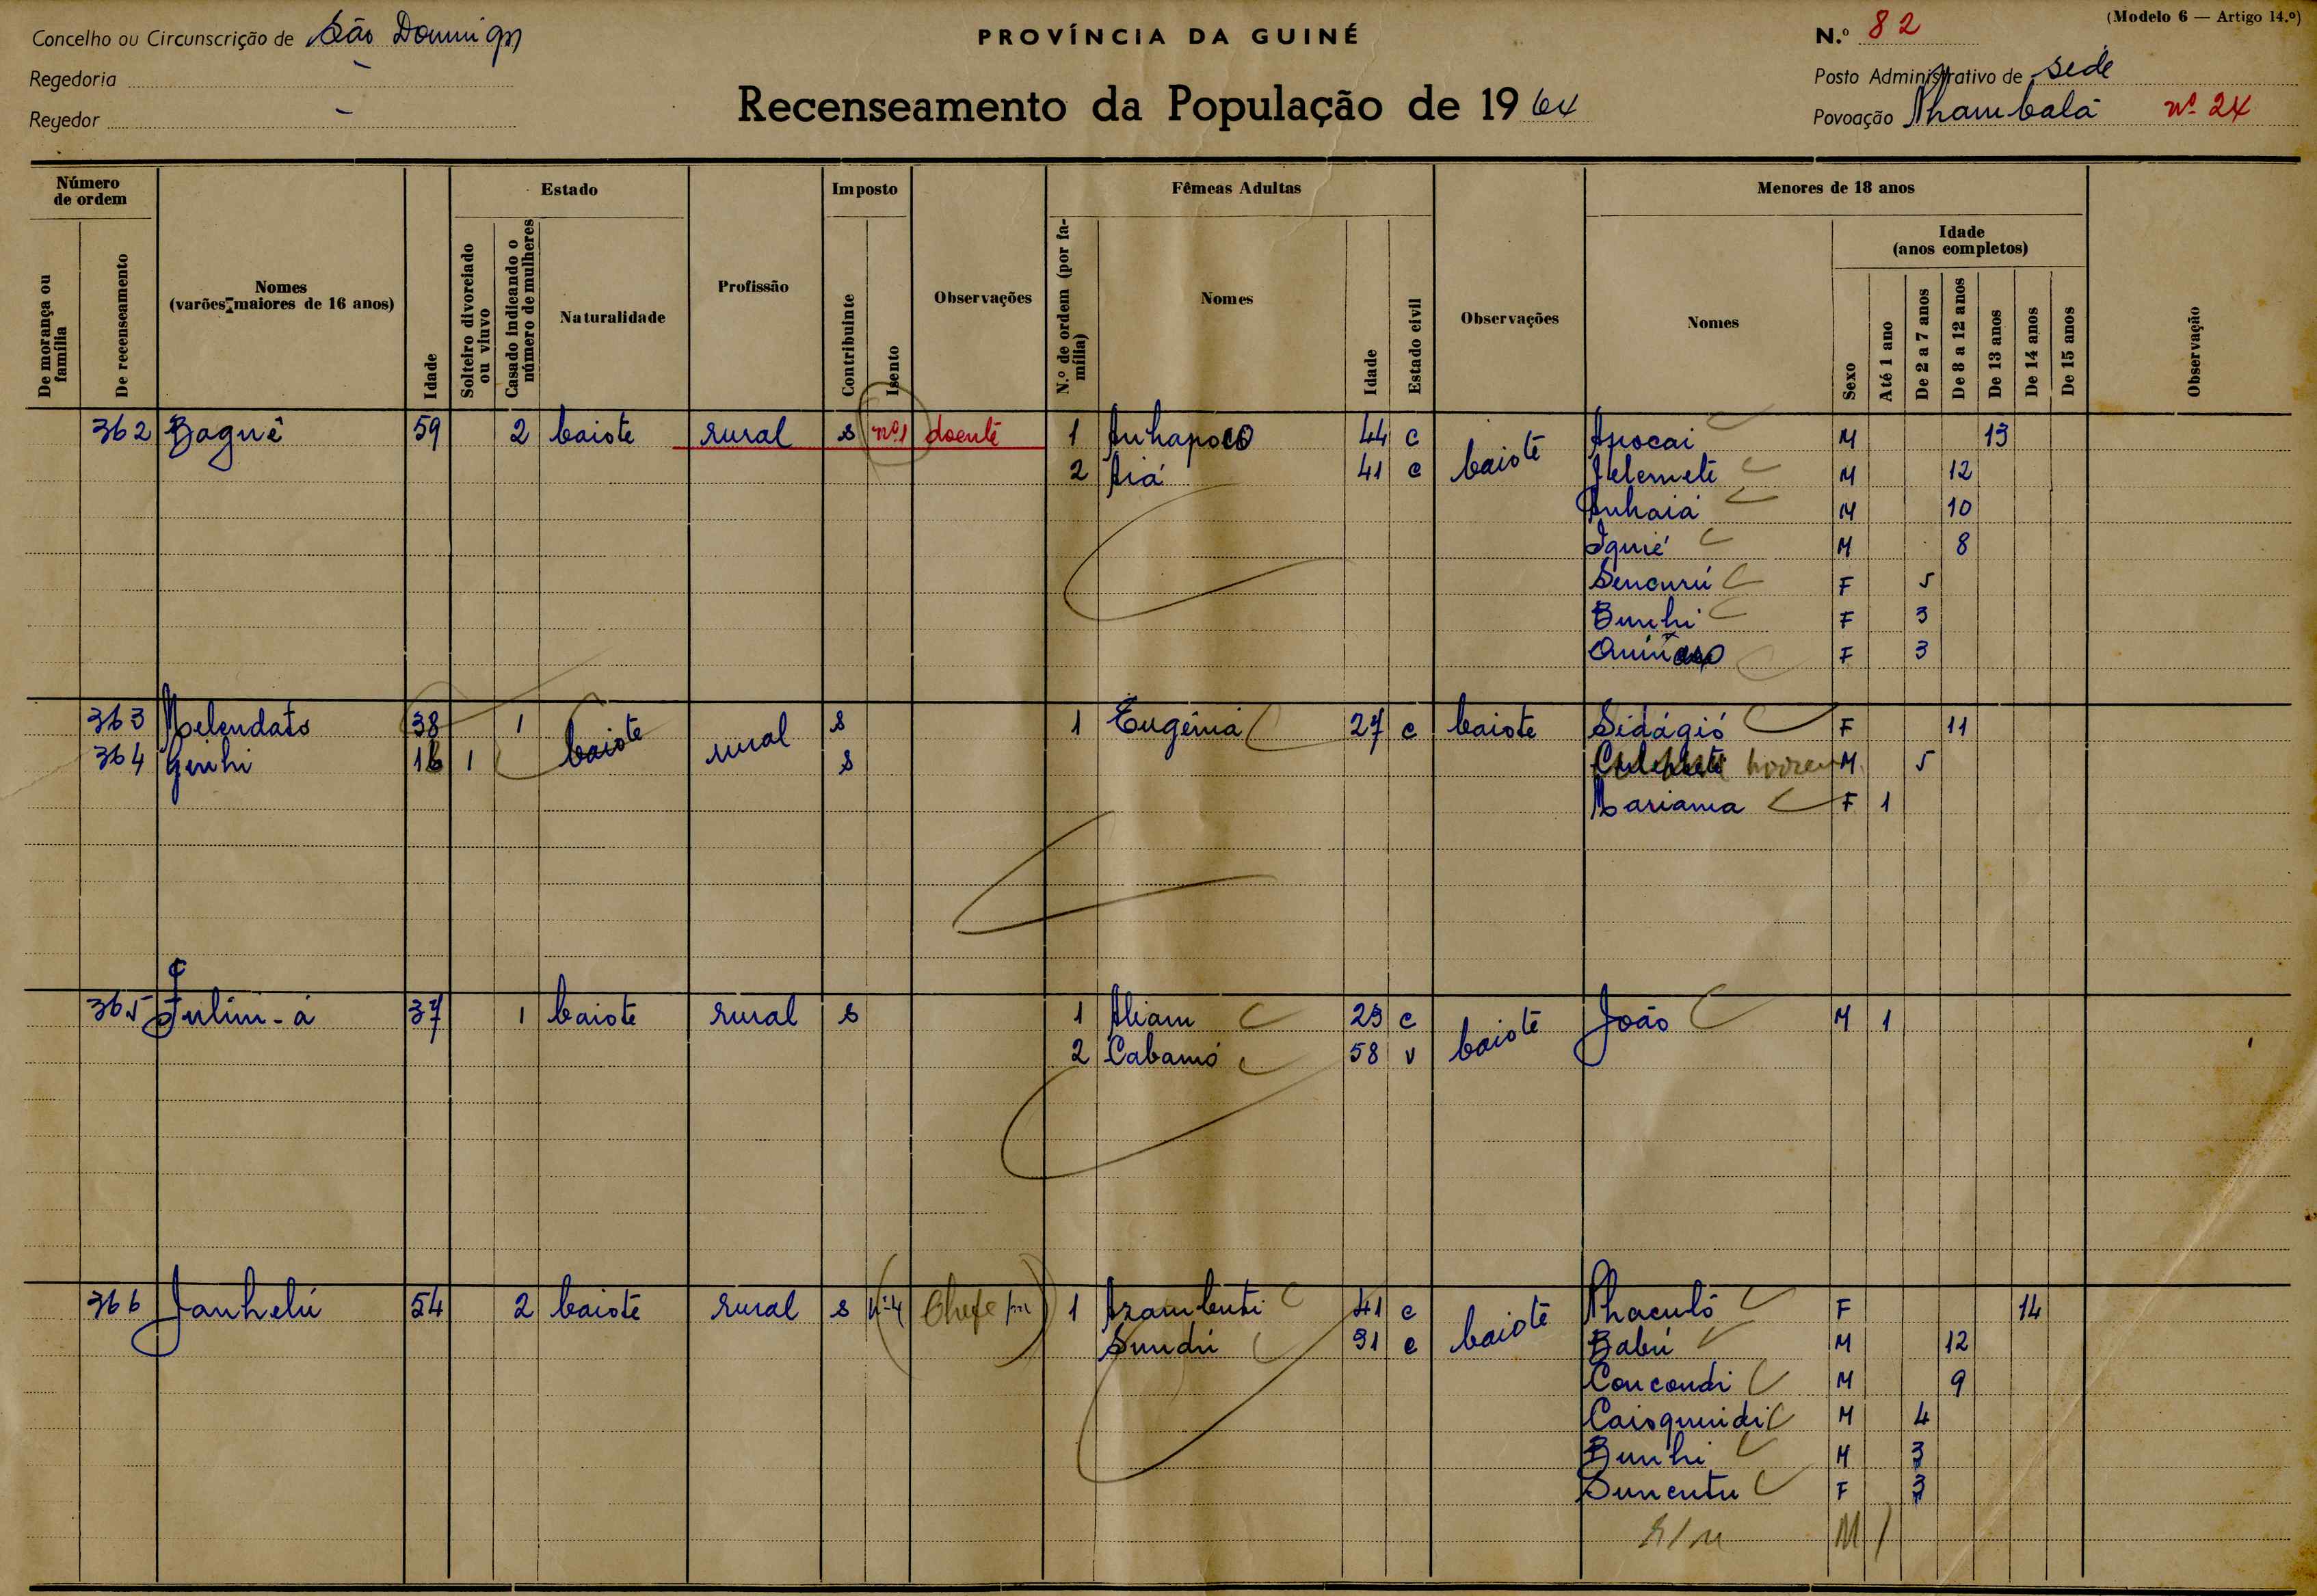 Concelho ou Circunscrição de São Domingos
Regedoria -
Regedor -
PROVÍNCIA DA GUINÉ
Recenseamento da População de 1964
(Modelo 6 — Artigo 14.º)
N.º 82
Posto Administrativo de sede
Povoação Nhambalã nº 24
Número de ordem
De morança ou família
De recenseamento
Nomes (varões maiores de 16 anos)
Idade
Estado
Solteiro divorciado ou viuvo
Casado indicando o número de mulheres
Naturalidade
Profissão
Imposto
Contribuinte
Isento
Observações
Fêmeas Adultas
N.º de ordem (por família)
Nomes
Idade
Estado civil
Observações
Menores de 18 anos
Nomes
Sexo
Idade (anos completos)
Até 1 ano
De 2 a 7 anos
De 8 a 12 anos
De 13 anos
De 14 anos
De 15 anos
Observação
362 Bagnê 59 2 baiote rural s nº1 doente 1 Anhapoco 44 c baiote Apocai M 13
2 Aiá 41 c Jelemeti M 12
Anhaiá M 10
Iguié M 8
Sencurú F 5
Bunhi F 3
F 3
363 Melendato 38 1 baiote rural s 1 Eugénia 27 c baiote Sidágió F 11
364 Genhi 16 1 s M 5
Mariama F 1
365 Julim-á 37 1 baiote rural s 1 Aliam 23 c baiote João M 1
2 Cabamó 58 v
366 Janhelú 54 2 baiote rural s nº4 Chefe 1 Azambuti 41 c baiote Nhaculó F 14
Sundú 31 c Babú M 12
Concondi M 9
Caisquindi M 4
Bunhi M 3
Suncutu F 3
M 1